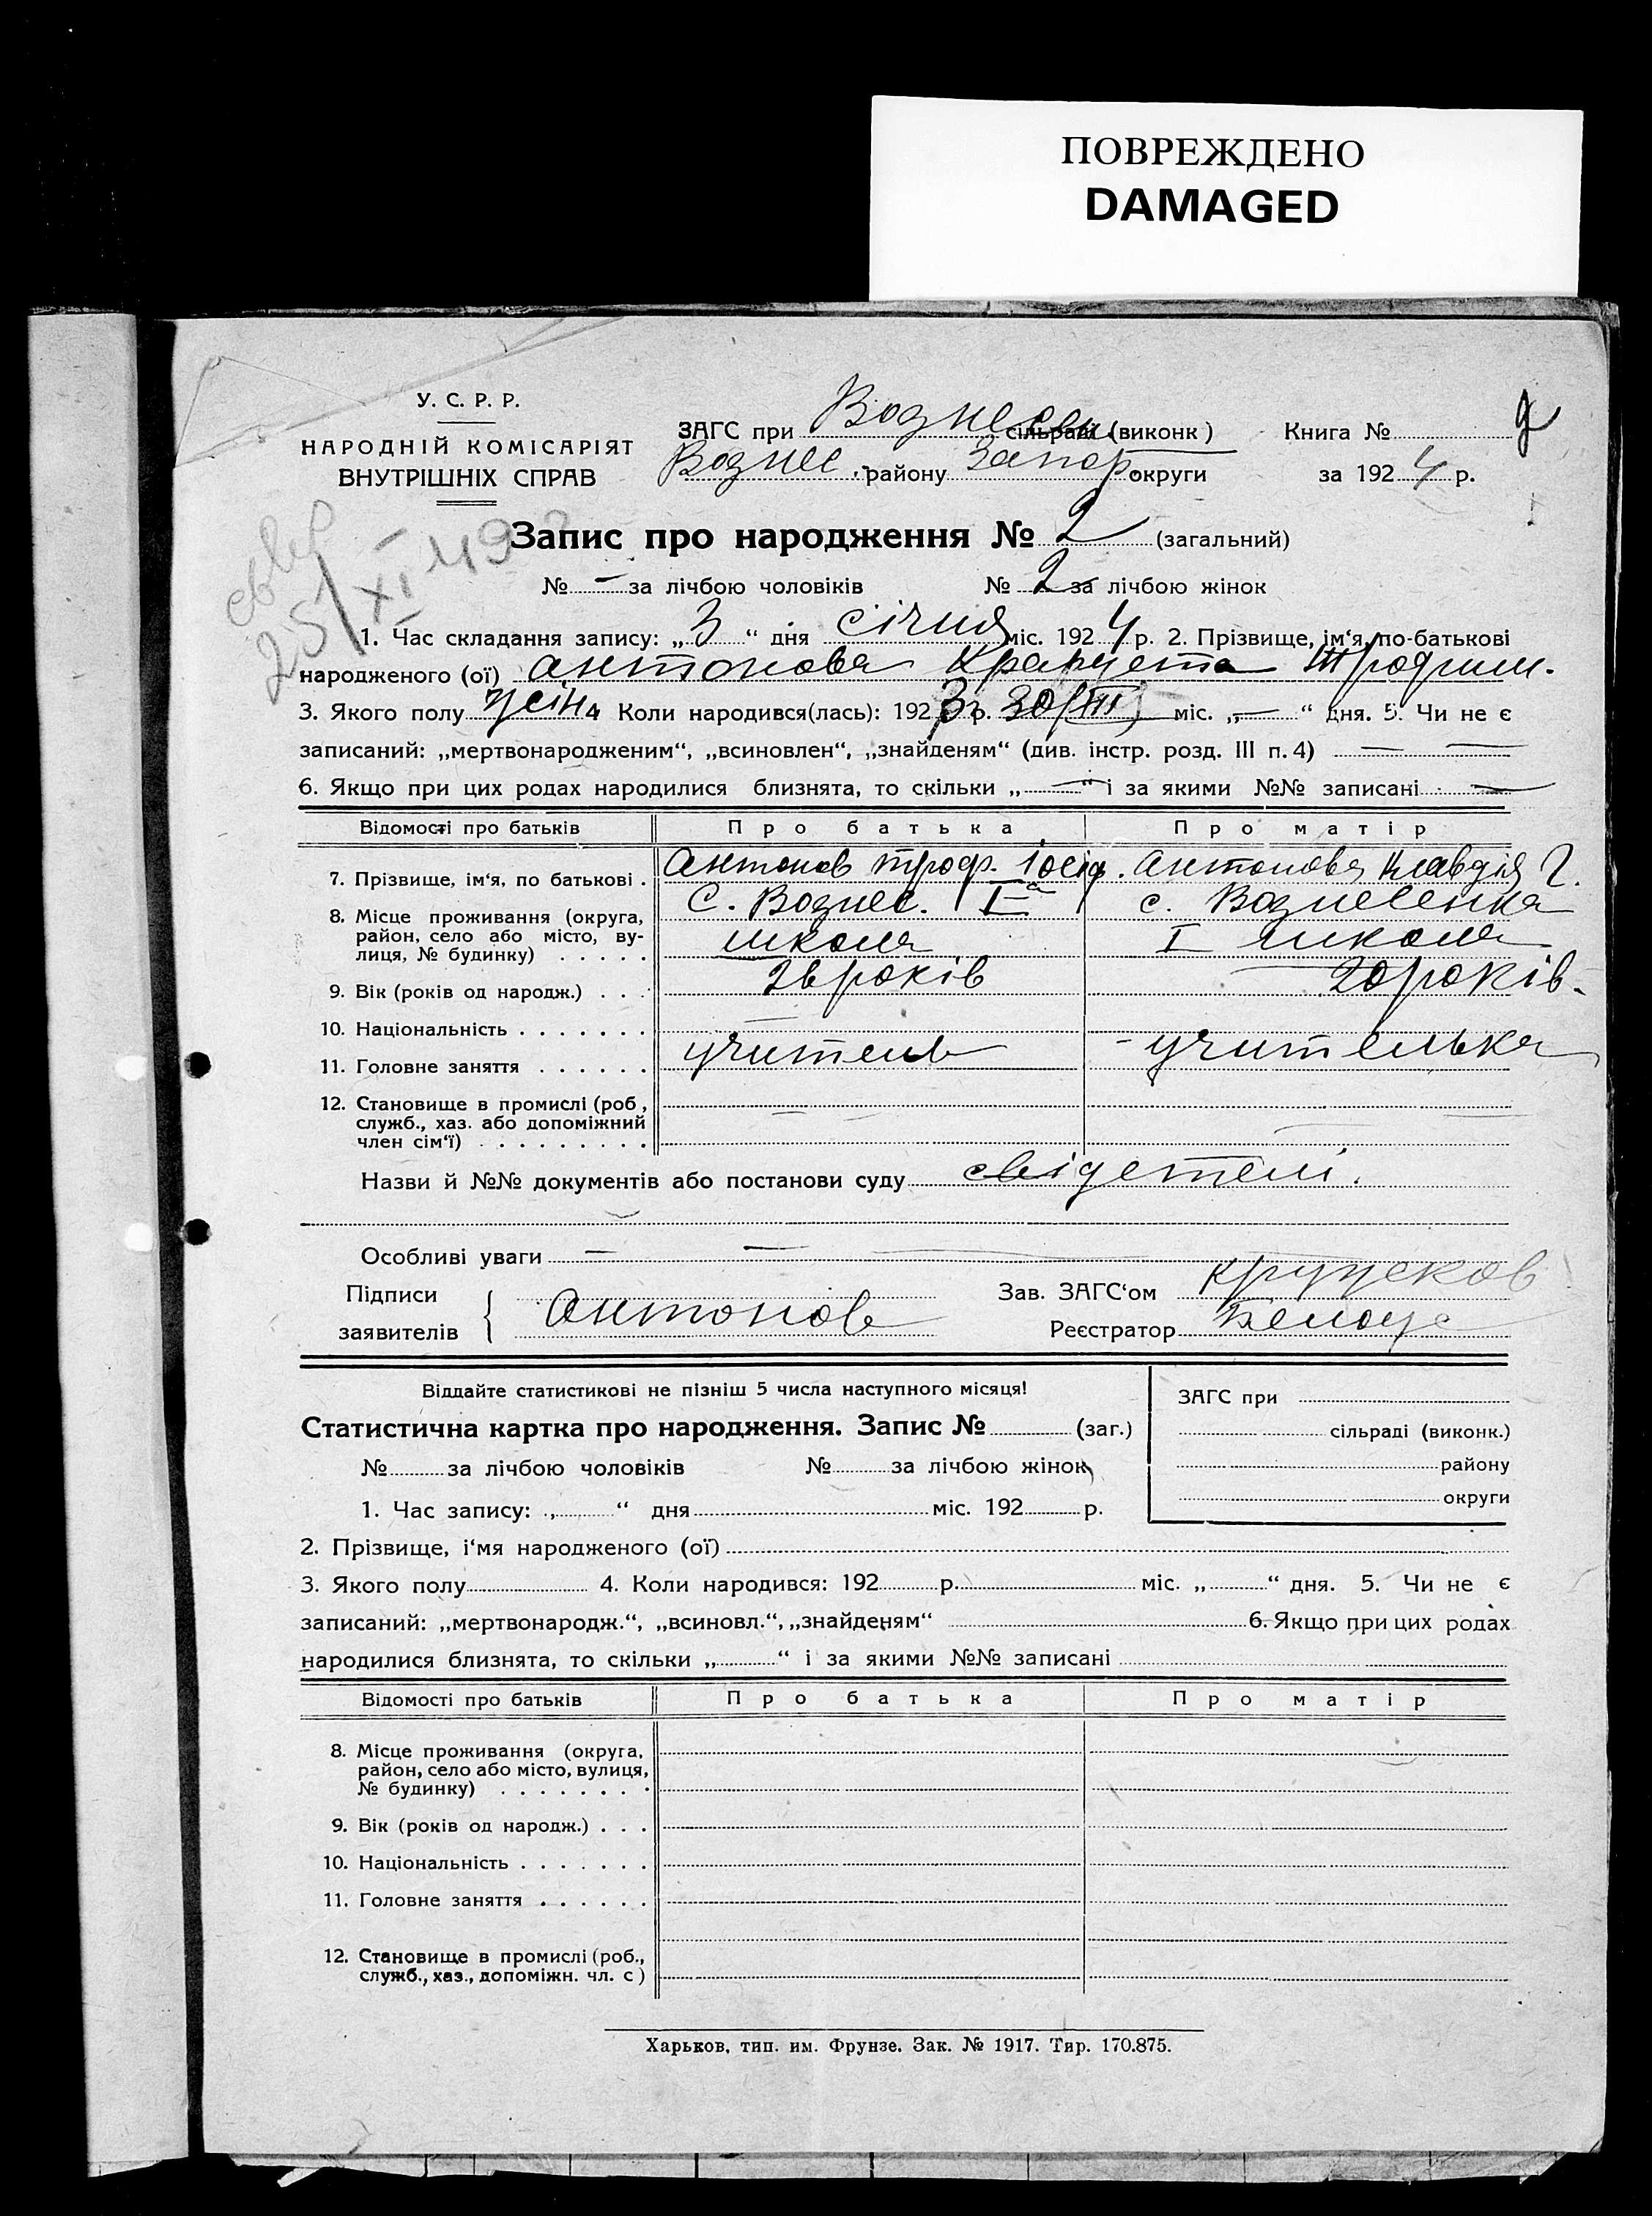 ПОВРЕЖДЕНО
DAMAGED
У. С. Р. Р.
НАРОДНІЙ КОМІСАРІЯТ
ВНУТРІШНІХ СПРАВ
ЗАГС при Вознесен. сільраді (виконк) Книга №
Вознес. району Запор. округи за 1924 р.
25/XI 49
Запис про народження № 2 (загальний)
№ — за лічбою чоловіків № 2 за лічбою жінок
1. Час складання запису: „3“ дня січня міс. 1924 р. 2. Прізвище, ім‘я, по-батькові
народженого (ої) Антонова Трофим.
3. Якого полу жін 4 Коли народився(лась): 1923 р. 30/III міс. „—“ дня. 5. Чи не є
записаний: „мертвонародженим“, „всиновлен“, „знайденям“ (див. інстр. розд. III п. 4) — —
6. Якщо при цих родах народилися близнята, то скільки „—“ і за якими №№ записані —
Відомості про батьків Про батька Про матір
7. Прізвище, ім‘я, по батькові . Антонов Троф. Іосід. Антонова Клавдія Г.
8. Місце проживання (округа, район, село або місто, вулиця, № будинку) . . . . . С. Вознес. Iа школа с. Вознесенка I школа
9. Вік (років од народж.) . . . 26 років 20 років.
10. Національність . . . . . . .
11. Головне заняття . . . . . . учитель учителька
12. Становище в промислі (роб, служб., хаз. або допоміжний член сім‘ї) . . . . . . . . . — —
Назви й №№ документів або постанови суду свідетелі.
Особливі уваги — —
Підписи заявителів { Антонов
Зав. ЗАГС‘ом
Реєстратор Белоус
Віддайте статистикові не пізніш 5 числа наступного місяця!
Статистична картка про народження. Запис № (заг.)
№ за лічбою чоловіків № за лічбою жінок
1. Час запису: „ “ дня міс. 192 р.
ЗАГС при
сільраді (виконк.)
району
округи
2. Прізвище, і‘мя народженого (ої)
3. Якого полу 4. Коли народився: 192 р. міс. „ “ дня. 5. Чи не є
записаний: „мертвонародж.“, „всиновл.“, „знайденям“ 6. Якщо при цих родах
народилися близнята, то скільки „ “ і за якими №№ записані
Відомості про батьків Про батька Про матір
8. Місце проживання (округа,
район, село або місто, вулиця,
№ будинку) . . . . . . . .
9. Вік (років од народж.) . . .
10. Національність . . . . . . .
11. Головне заняття . . . . . .
12. Становище в промислі (роб.,
служб., хаз., допоміжн. чл. с)
Харьков, тип. им. Фрунзе. Зак. № 1917. Тир. 170.875.